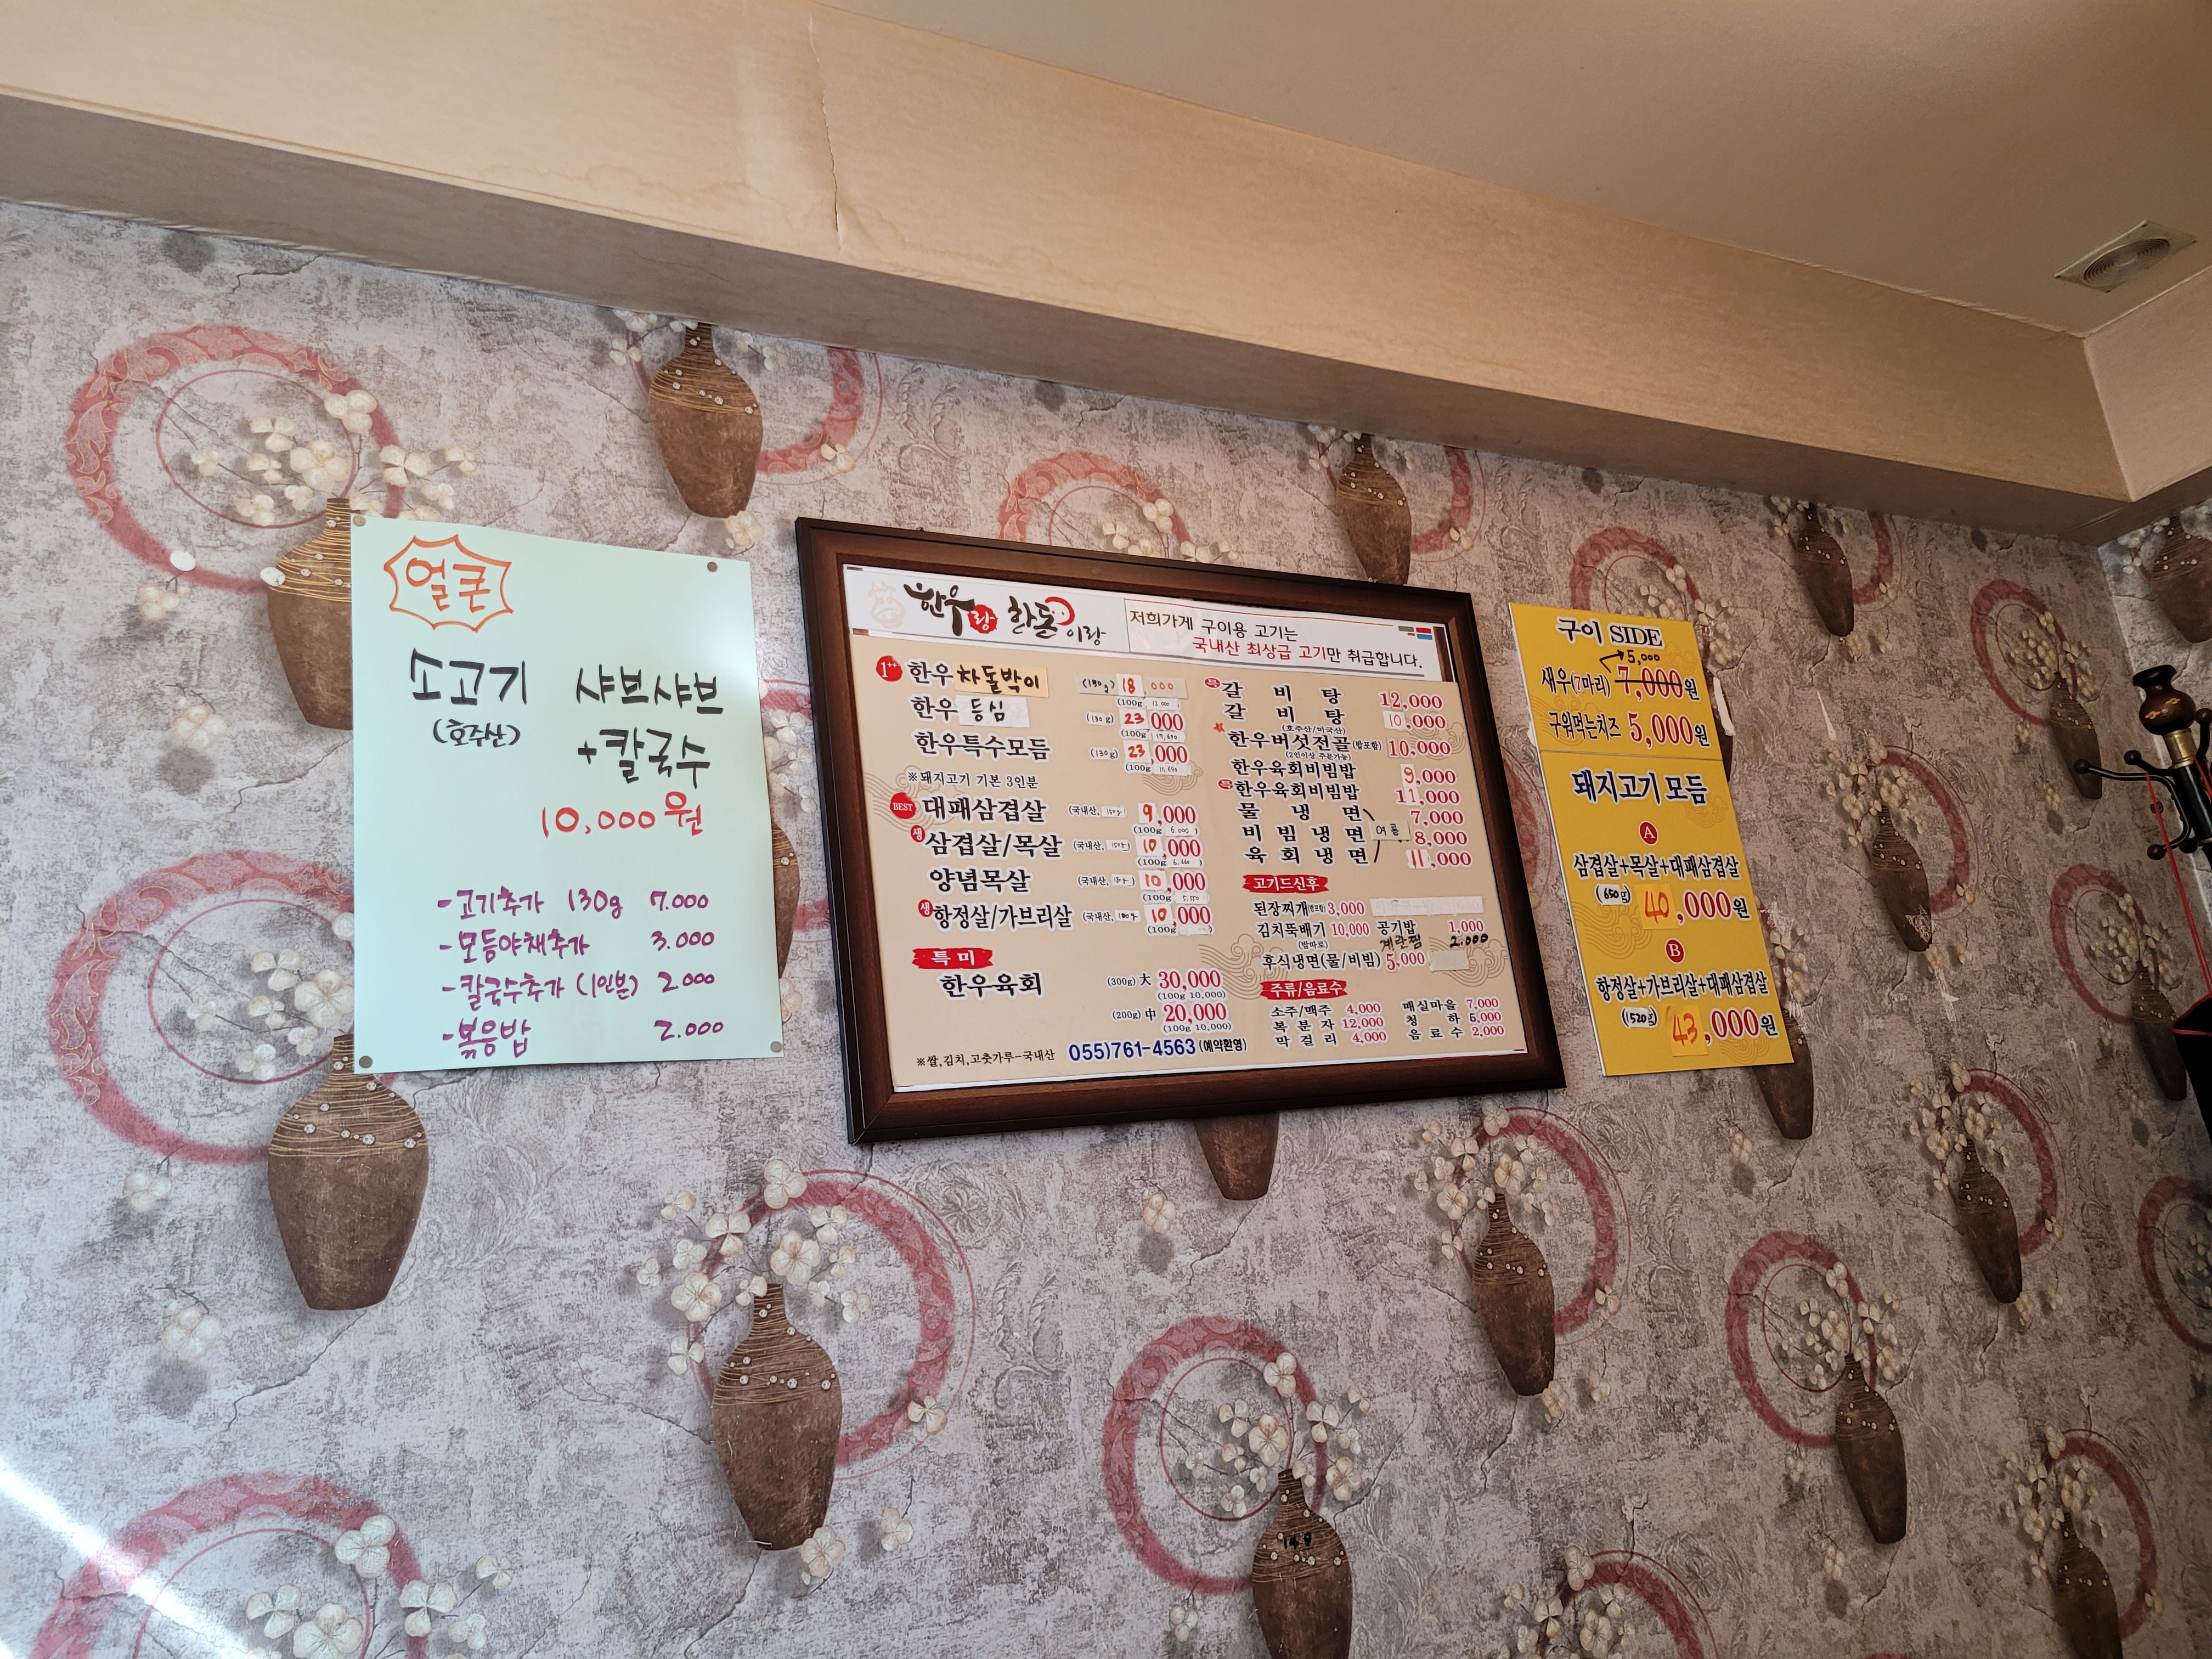 얼큰
소고기 샤브샤브
(호주산)
+칼국수
10,000원
-고기추가 130g 7.000
-모듬야채추가 3.000
-칼국수추가 (1인분) 2.000
-볶음밥 2.000
한우랑 한돈이랑
저희가게 구이용 고기는
국내산 최상급 고기만 취급합니다.
1++ 한우차돌박이 (130g) 18,000
(100g 12.000)
한우등심 (130g) 23,000
(100g
한우특수모듬 (130g) 23,000
(100g
※돼지고기 기본 3인분
BEST 대패삼겹살 (국내산, 9,000
(100g 6.000)
생 삼겹살/목살 (국내산, 10,000
(100g 6.660)
양념목살 (국내산, 10,000
(100g
생 항정살/가브리살 (국내산, 10,000
(100g
특미
한우육회 (300g) 大 30,000
(100g 10,000)
(200g) 中 20,000
(100g 10,000)
※쌀,김치,고춧가루-국내산
055)761-4563 (예약환영)
특 갈비탕 12,000
갈비탕 10,000
(호주산/미국산)
한우버섯전골(밥포함) 10,000
(2인이상 주문가능)
한우육회비빔밥 9,000
특 한우육회비빔밥 11,000
물냉면 7,000
비빔냉면 여름 8,000
육회냉면 11,000
고기드신후
된장찌개(밥포함) 3,000
김치뚝배기 10,000 공기밥 1,000
(밥따로) 계란찜 2.000
후식냉면(물/비빔) 5,000
주류/음료수
소주/맥주 4,000 매실마을 7,000
복분자 12,000 청하 5,000
막걸리 4,000 음료수 2,000
구이 SIDE
5,000
새우(7마리) 7,000원
구워먹는치즈 5,000원
돼지고기 모듬
A
삼겹살+목살+대패삼겹살
(650g) 40,000원
B
항정살+가브리살+대패삼겹살
43,000원